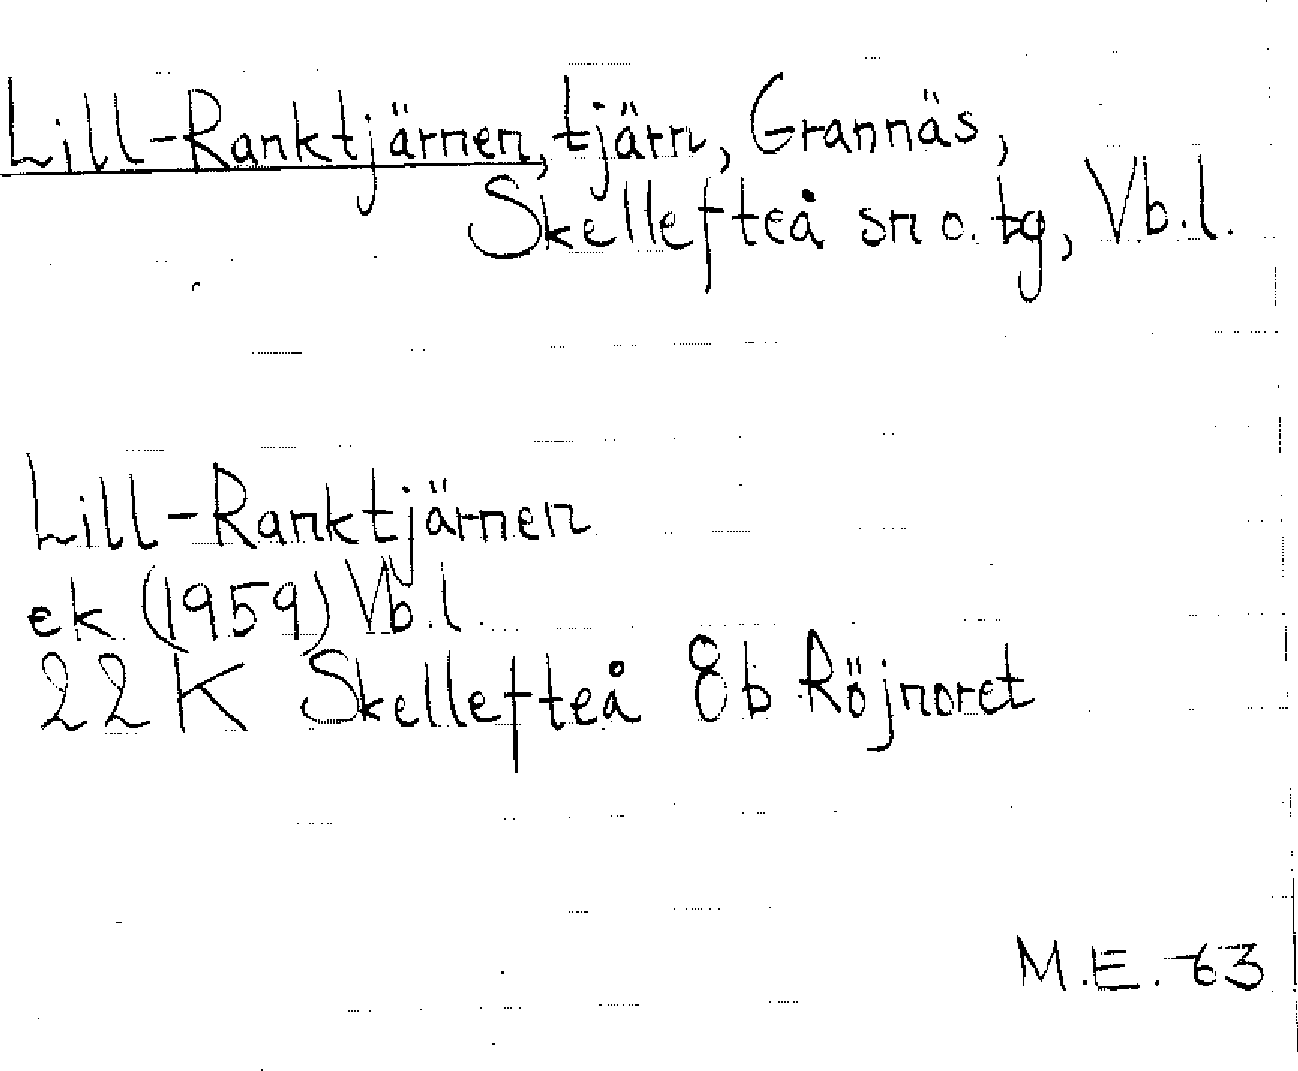 Lill-Ranktjärnen, tjärn, Grannäs,
Skellefteå sn o. tg, Vb.l.
Lill-Ranktjärnen
ek (1959) Vb.l.
22 K Skellefteå 8b Röjnoret
M.E. -63